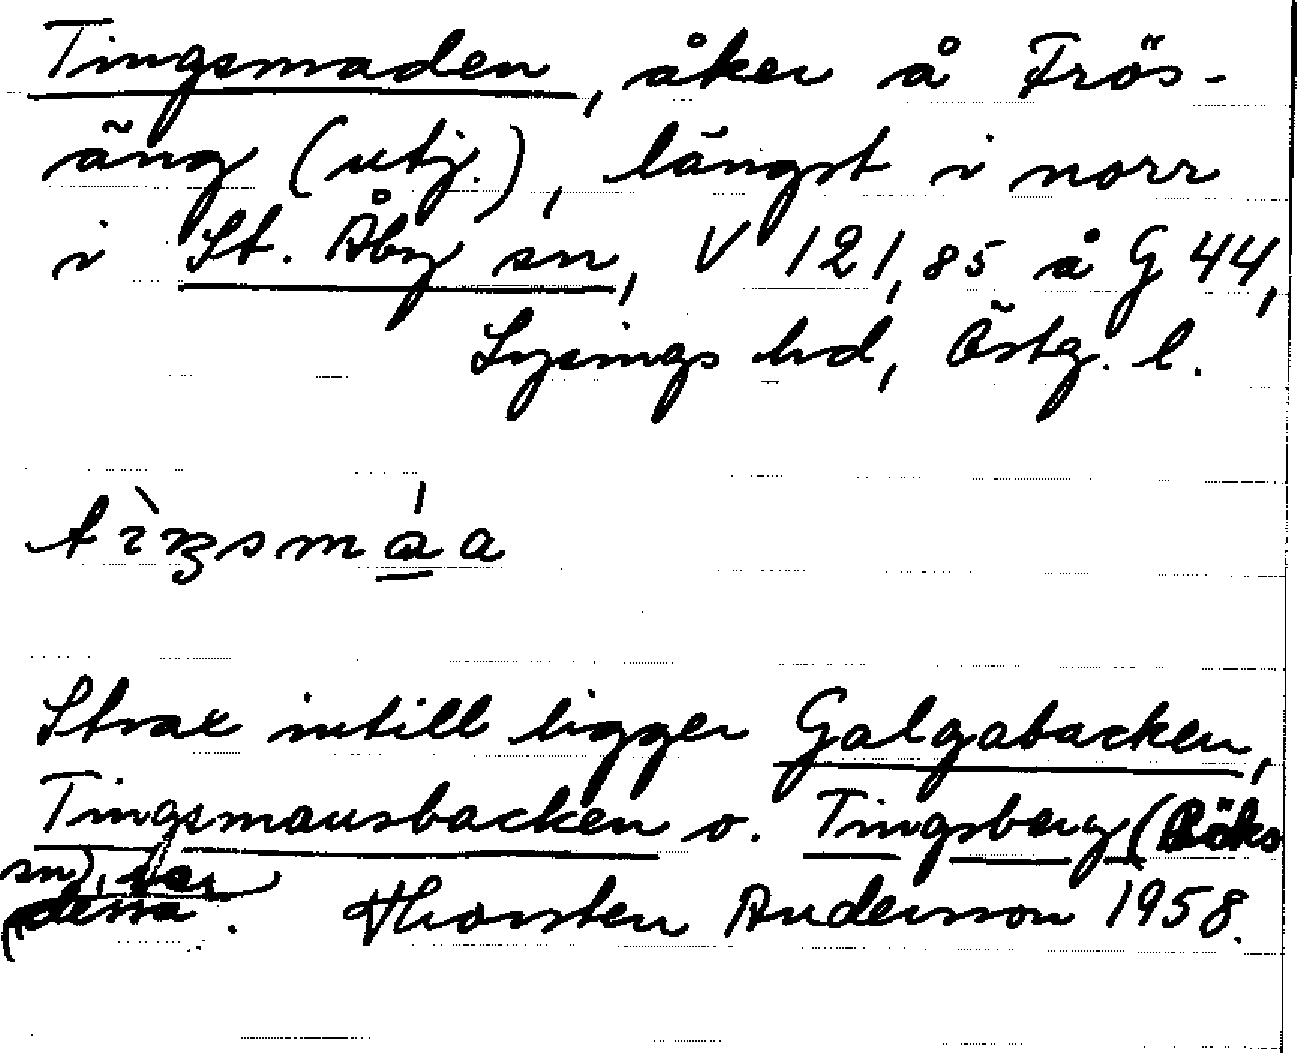 Tingsmaden, åker å Frös-
äng (utj.), längst i norr
i St. Åby sn, V 121,85 å G 44,
Lysings hd, Östg. l.
Strax intill ligger Galgabacken,
Tingsmansbacken o. Tingsberg (Röks
sn)
Thorsten Andersson 1958.